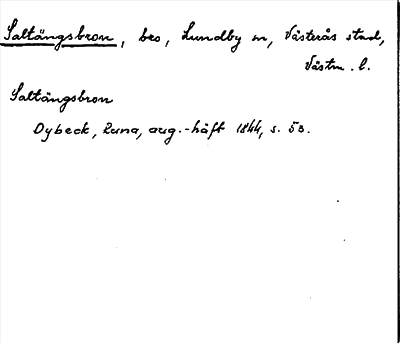 Saltängsbron, bro, Lundby sn, Västerås stad,
Västm. l.
Saltängsbron
Dybeck, Runa, aug.-häft 1844, s. 53.